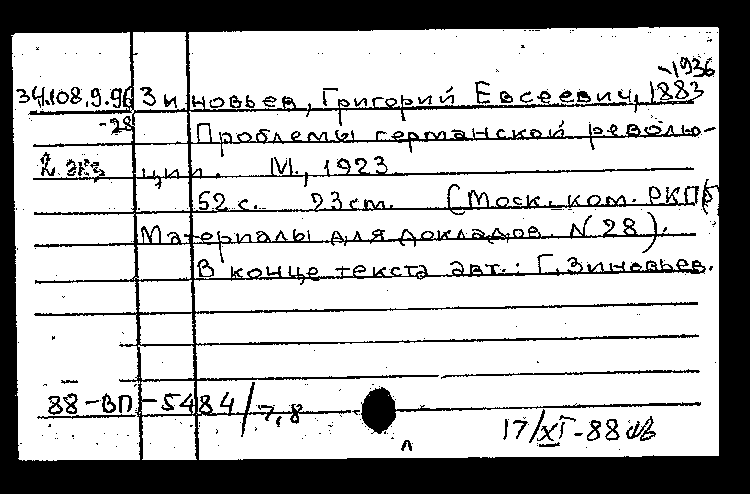 -1936
34.108.9.96 Зиновьев, Григорий Евсеевич, 1883
-28 Проблемы германской револю-
2 экз. ции. М., 1923.
52 с. 23 cm. (Моск. ком. РКП(б)
Материалы для докладов. N 28).
В конце текста авт.: Г. Зиновьев.
88-ВП-5484/7,8
17/XI-88
л